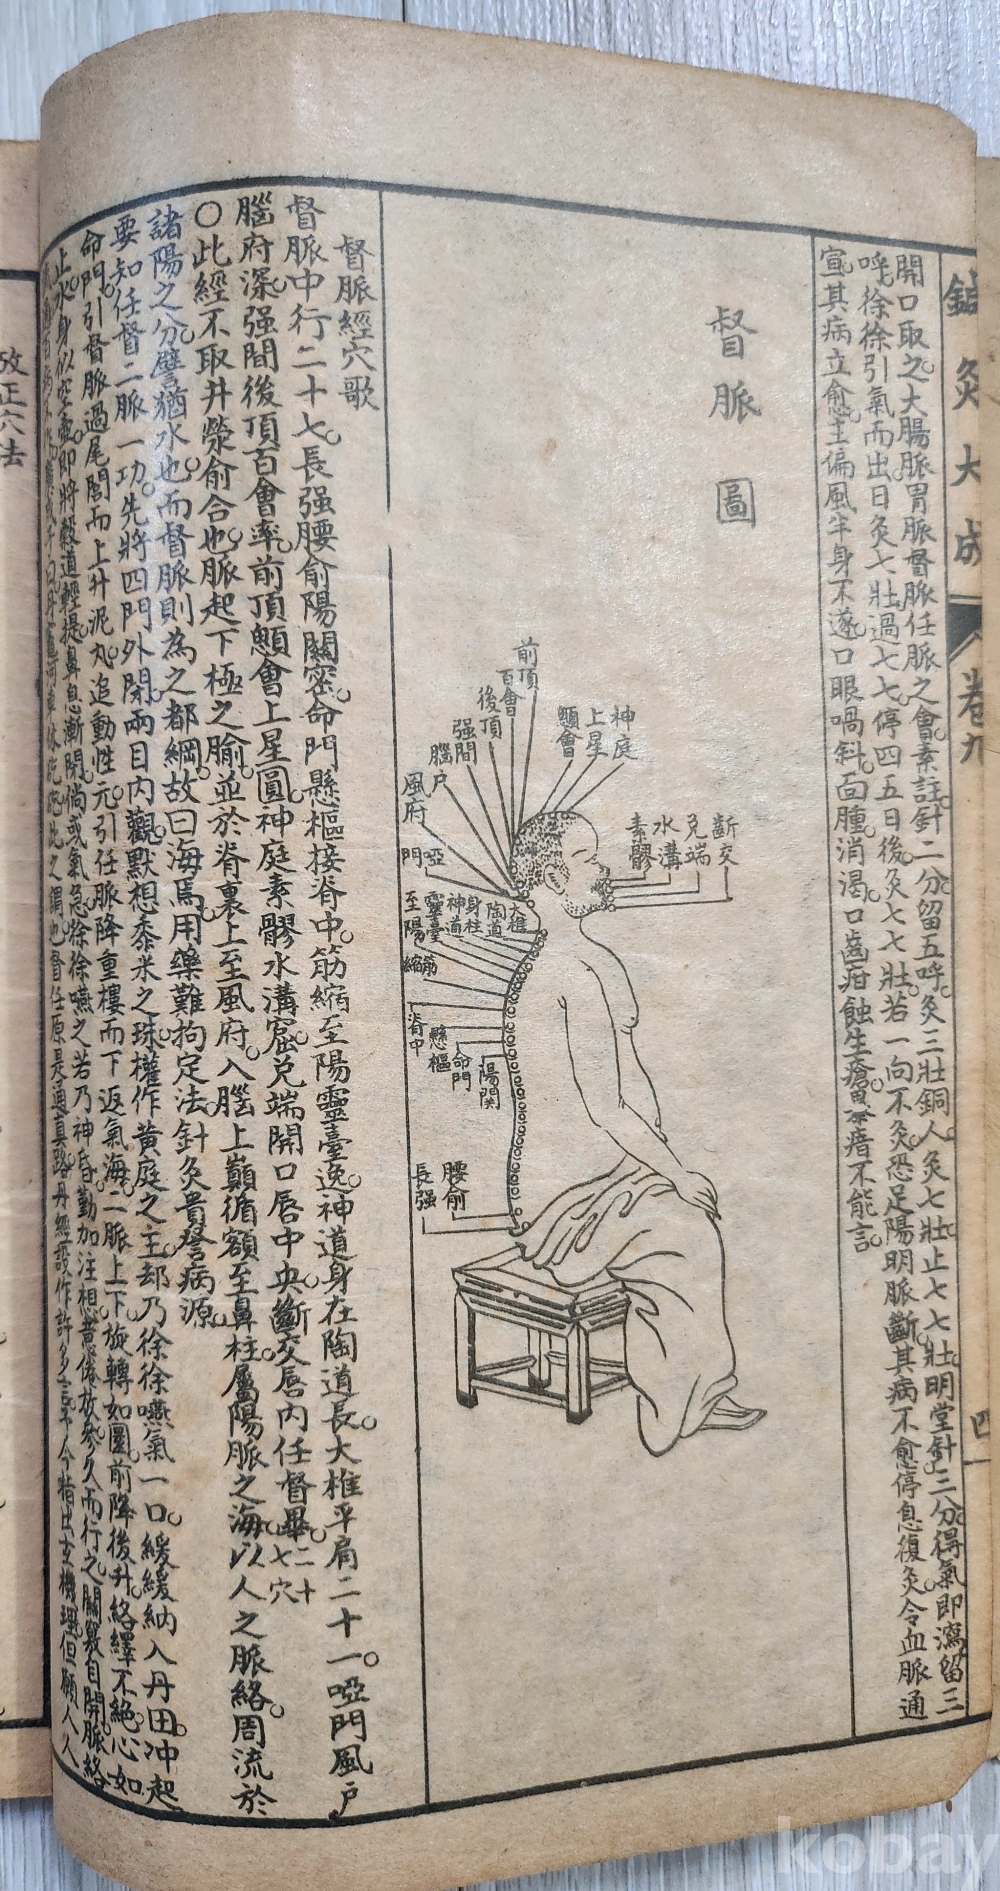 鍼灸大成
卷九
四
開口取之大腸脈胃脈督脈任脈之會素註針二分留五呼灸三壯銅人灸七壯止七七壯明堂針三分得氣即瀉留三
呼徐徐引氣而出日灸七壯過七七停四五日後灸七七壯若一向不灸恐足陽明脈斷其病不愈停息復灸令血脈通
宣其病立愈主偏風半身不遂口眼喎斜面腫消渴口齒疳蝕生瘡暴瘖不能言
督脈圖
神庭
上星
顖會
前頂
百會
後頂
强間
腦戶
風府
啞門
斷交
兌端
水溝
素髎
大椎
陶道
身柱
神道
靈臺
至陽
筋縮
脊中
懸樞
命門
陽関
腰俞
長强
督脈經穴歌
督脈中行二十七長强腰俞陽關密命門懸樞接脊中筋縮至陽靈臺逸神道身在陶道長大椎平肩二十一啞門風戶
腦府深强間後頂百會率前頂顖會上星圓神庭素髎水溝窟兌端開口唇中央斷交唇内任督畢二十七穴
〇此經不取井滎俞合也脈起下極之腧並於脊裏上至風府入腦上巔循額至鼻柱屬陽脈之海以人之脈絡周流於
諸陽之分譬猶水也而督脈則為之都綱故曰海焉用藥難拘定法針灸貴詧病源
要知任督二脈一功先將四門外閉兩目内觀默想黍米之珠權作黄庭之主却乃徐徐嚥氣一口緩緩納入丹田冲起
命門引督脈過尾閭而上升泥丸追動性元引任脈降重樓而下返氣海二脈上下旋轉如圜前降後升絡繹不絶心如
止水身似空壷即將穀道輕提鼻息漸閉倘或氣急徐徐嚥之若乃神昏勤加注想意倦放參久而行之關竅自開脈絡
此之謂也督任原是通真路丹經設作許多言予今指出玄機理但願人人
攷正穴法
kobay